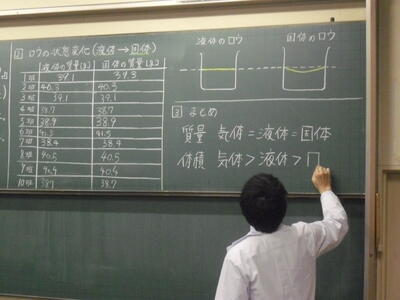 ② ロウの状態変化(液体→固体)
液体の質量(g) 固体の質量(g)
1班 39.1 39.3
2班 40.3 40.3
3班 39.1 39.1
4班 38.7 38.7
5班 38.9 38.9
6班 41.5 41.5
7班 38.4 38.4
8班 40.5 40.5
9班 40.4 40.4
10班 38.7 38.7
液体のロウ 固体のロウ
③ まとめ
質量 気体=液体=固体
体積 気体>液体>